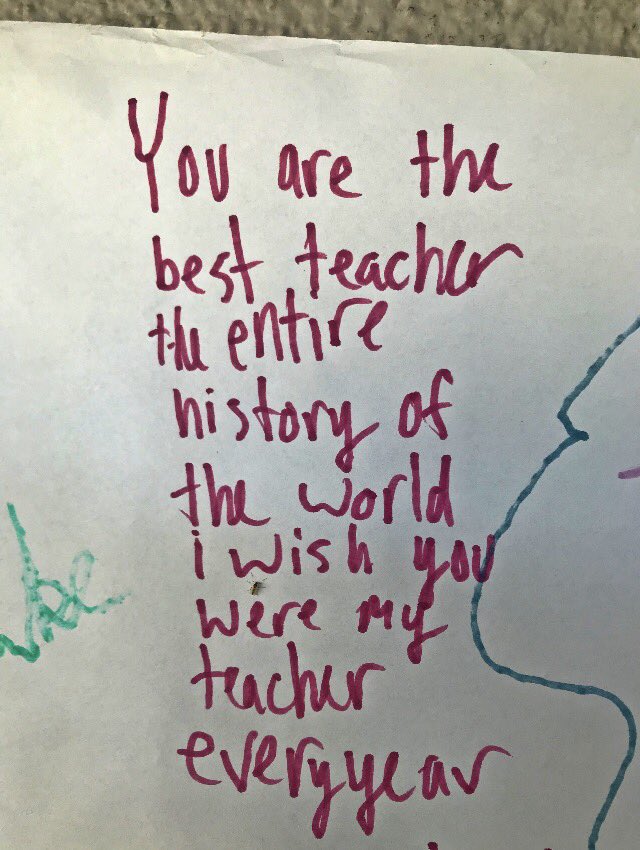 You are the
best teacher
the entire
history of
the world
i wish you
were my
teacher
everyyear